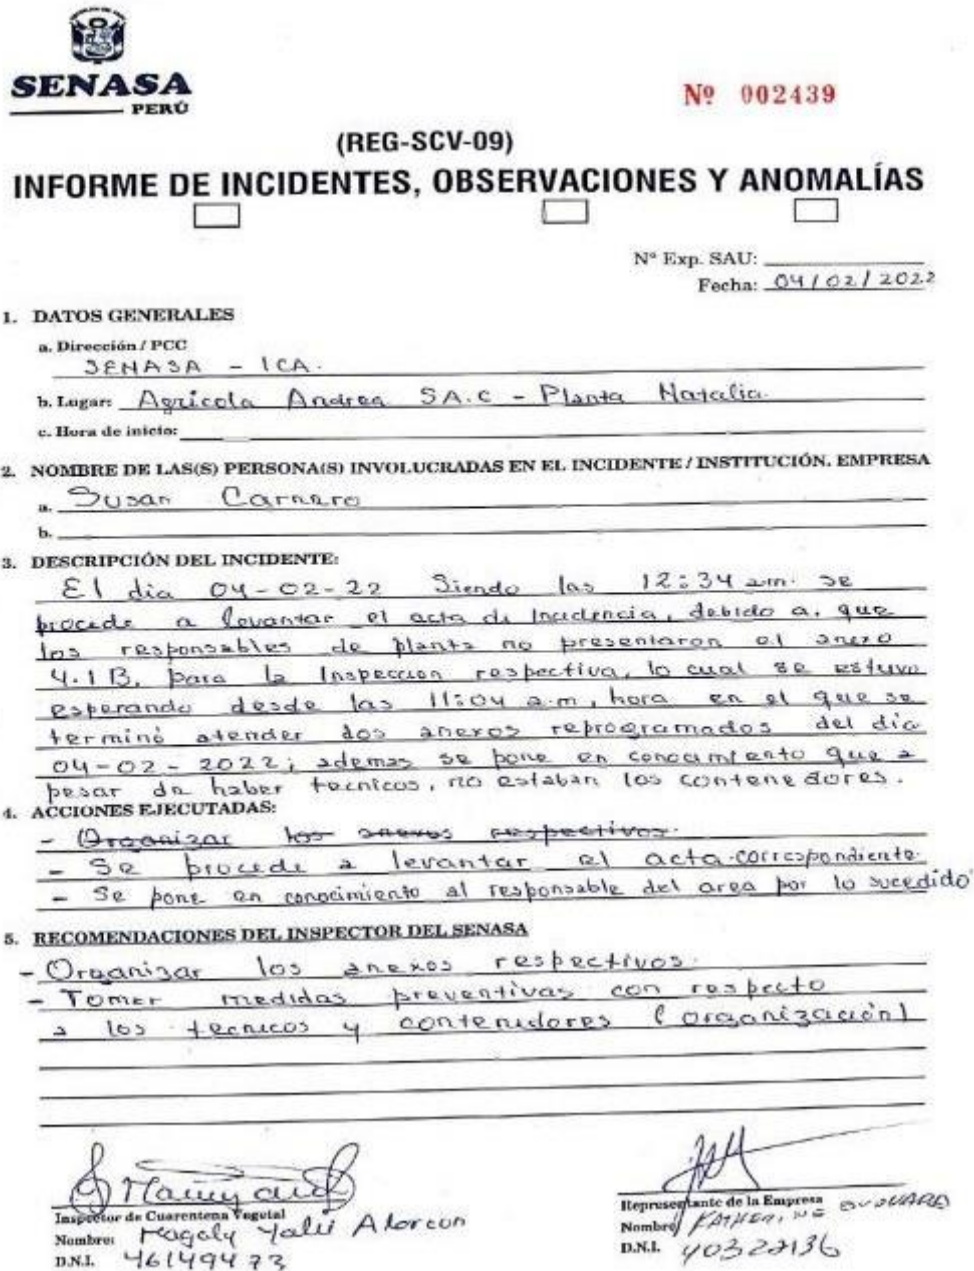 SENASA
PERÚ
Nº 002439
(REG-SCV-09)
INFORME DE INCIDENTES, OBSERVACIONES Y ANOMALÍAS
N° Exp. SAU:
Fecha: 04/02/2022
1. DATOS GENERALES
a. Dirección / PCC
SENASA - ICA.
b. Lugar: Agricola Andrea SA.C - Planta Natalia.
c. Hora de inicio:
2. NOMBRE DE LAS(S) PERSONA(S) INVOLUCRADAS EN EL INCIDENTE / INSTITUCIÓN. EMPRESA
a. Susan Carnero
b.
3. DESCRIPCIÓN DEL INCIDENTE:
El dia 04-02-22 Siendo las 12:34 am. se
procede a levantar el acta de Incidencia, debido a. que
los responsables de planta no presentaron el anexo
4.1B, para la Inspeccion respectiva, lo cual se estuvo
esperando desde las 11:04 a.m, hora en el que se
terminó atender dos anexos reprogramados del dia
04-02-2022; ademas se pone en conocimiento que a
pesar de haber tecnicos, no estaban los contenedores.
4. ACCIONES EJECUTADAS:
- Organizar los anexos respectivos.
- Se procede a levantar el acta correspondiente.
- Se pone en conocimiento al responsable del area por lo sucedido
5. RECOMENDACIONES DEL INSPECTOR DEL SENASA
- Organizar los anexos respectivos.
- Tomar medidas preventivas con respecto
a los tecnicos y contenidores (organización)
Inspector de Cuarentena Vegetal
Nombre: Magaly Alarcon
D.N.I. 46149473
Representante de la Empresa
Nombre
D.N.I. 40322136